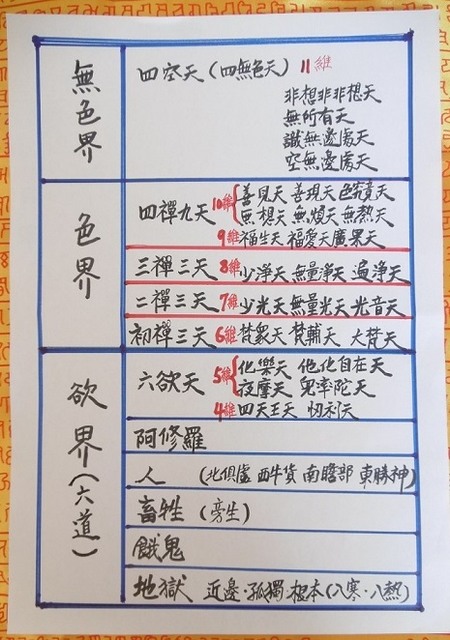 無色界
四空天（四無色天） 11維
非想非非想天
無所有天
識無邊處天
空無邊處天
色界
四禪九天 10維 善見天 善現天 色究竟天
無想天 無煩天 無熱天
9維 福生天 福愛天 廣果天
三禪三天 8維 少淨天 無量淨天 遍淨天
二禪三天 7維 少光天 無量光天 光音天
初禪三天 6維 梵衆天 梵輔天 大梵天
欲界（六道）
六欲天 5維 化樂天 他化自在天
夜摩天 兜率陀天
4維 四天王天 忉利天
阿修羅
人 （北俱盧 西牛貨 南瞻部 東勝神）
畜牲（旁生）
餓鬼
地獄 近邊·孤獨·根本（八寒·八熱）